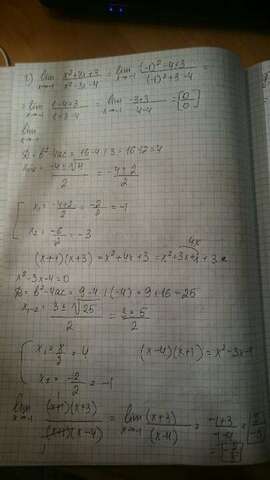 2) lim x→-1 (x²+4x+3)/(x²-3x-4) = lim x→-1 ((-1)²-4+3)/((-1)²+3-4) =
= lim x→-1 (1-4+3)/(1+3-4) = lim x→-1 (-3+3)/(4-4) = [0/0]
lim x→-1
D = b²-4ac = 16-4·1·3 = 16-12 = 4
x₁,₂ = (-4±√4)/2 = (-4±2)/2
x₁ = (-4+2)/2 = -2/2 = -1
x₂ = -6/2 = -3
(x+1)(x+3) = x²+4x+3 = x²+3x+x+3
4x
x²-3x-4=0
D = b²-4ac = 9-4·1·(-4) = 9+16 = 25
x₁,₂ = (3±√25)/2 = (3±5)/2
x₁ = 8/2 = 4 (x-4)(x+1) = x²-3x-4
x₂ = -2/2 = -1
lim x→-1 (x+1)(x+3)/(x+1)(x-4) = lim x→-1 (x+3)/(x-4) = (-1+3)/(-1-4)